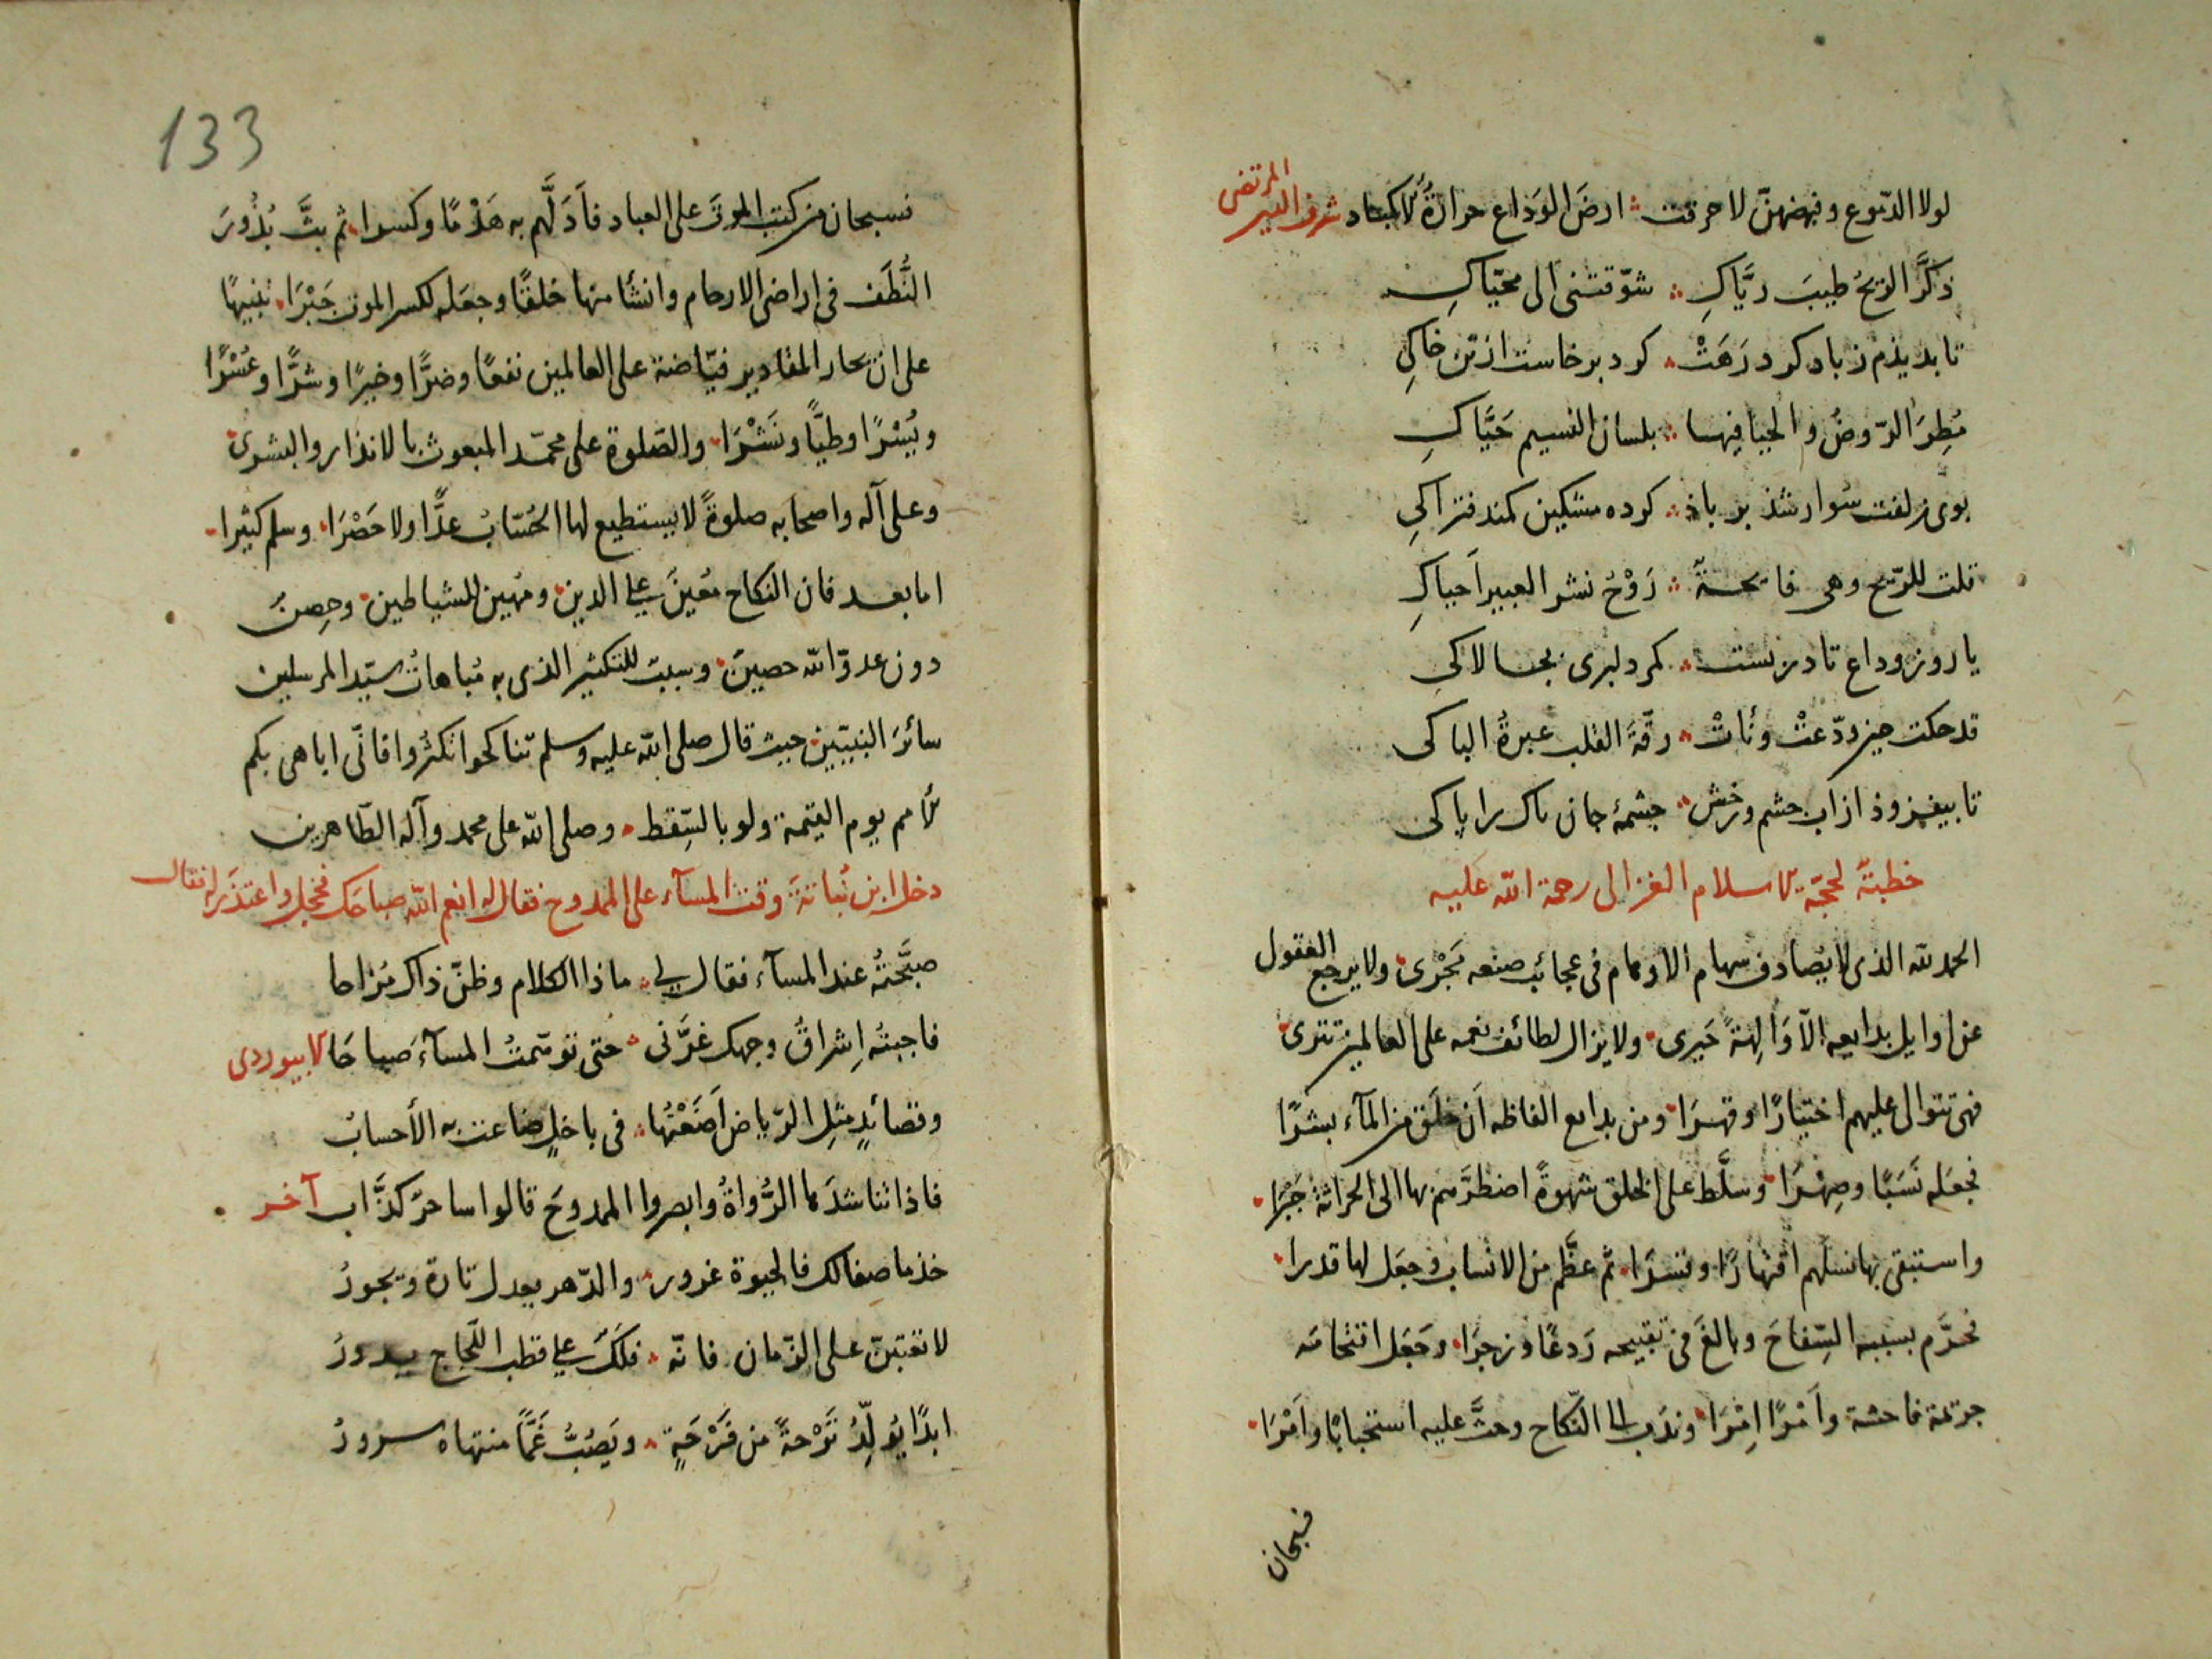 لولا الدّموع وفيضهنّ لاحرقت ؞ ارضَ الوَدَاع حرارةُ الاكباد شرف الدين المرتضى
ذكَّرَ الريحُ طيبَ ريَّاكِ ؞ شوّقتنى الى محيّاكِ
تا بديذم زباد كرد رَهَتْ ؞ كرد برخاست از تن خاكِى
مُطِرَ الرّوضُ والحيا فيهسا ؞ بلسان النسيم حَيَّاكِ
بوى زلفت سُوار شذ بر باذ ؞ كرده مشكين كمند فتراكِى
قلت للرّيح وهى فائحةٌ ؞ رَوْحُ نشر العبير اَحياكِ
يا روز وداع تا در بست ؞ كمر دلبرى بچالاكى
قد حكت حين ودّعتْ ونأتْ ؞ رقّةَ القلب عبرةُ الباكى
تا بيفزوذ از اب چشم ورخش ؞ چشمۀ جان پاك را پاكى
خطبةٌ لحجّة الاسلام الغزالى رحمة الله عليه
الحمد لله الذى لا يُصادف سهام الاوهام فى عجائب صنعه مَجْرى ولا يرجع العقول
عن اوايل بدايعه الّا وَالِهَةً حَيرى ولا يزال لطائف نعمه على العالمين تترى
فهى تتوالى عليهم اختيارًا وقهرَا ومن بدايع الفاظه اَن خلَق من المآء بشرًا
فجعَله نَسَبًا وصِهْرَا وسلَّط على الخلق شهوةً اضطرَّهم بها الى الحراثة جَبْرًا
واستبقى بها نسلهم اقهارًا وقسرَا ثم عظَّم من الانساب وجعَل لها قدرا
فحرَّم بسببه السِّفاحَ وبالغَ فى تقبيحه رَدعًا وزجرَا وجَعَل اقتحامَه
جريمة فاحشة واَمْرًا اِمْرَا وندَب الى النّكاح وحثَّ عليه استحبابًا واَمْرَا
فسبحان
133
فسبحان من كتب الموتَ على العباد فاَذلَّهم به هَدْمًا وكسرا ثم بثَّ بُذُورَ
النُّطَف فى اراضى الارحام وانشأ منها خلقًا وجعَله لكسر الموت جَبْرَا تنبيهًا
على ان بحار المقادير فيّاضة على العالمين نفعًا وضرًّا وخيرًا وشرًّا وعُسْرًا
ويُسْرًا وطيًّا ونَشْرَا والصّلوة على محمّد المبعوث بالانذار والبشرى
وعلى آله واصحابه صلوةً لا يستطيع لها الحُسّابُ عدًّا ولا حَصْرَا وسلم كثيرا
اما بعد فان النكاح مُعينٌ على الدين ومُهين للشياطين وحِصنٌ
دون عدوّ الله حصينٌ وسببٌ للتكثير الذى به مُباهاتُ سيّد المرسلين
سائرَ النبيّين حيث قال صلى الله عليه وسلم تناكحوا تكثروا فانّى اباهى بكم
الامم يوم القيمة ولو بالسِّقط ؞ وصلى الله على محمد وآله الطّاهرين
دخل ابن نُباتَةَ وقت المسآء على الممدوح فقال له انعم الله صباحَك فخجل واعتذَر له فقال
صبَّحتُه عند المسآء فقال لى ؞ ماذا الكلام وظنّ ذاك مُزاحا
فاجبتُه اِشراقُ وجهك غرَّنى ؞ حتى توسّمتُ المسآءَ صباحَا لابيوردى
وقصائدٍ مثلِ الرّياض اَضَعْتُها ؞ فى باخلٍ ضاعت به الأحسابُ
فاذا تناشدَها الرُّواةُ وابصروا الممدوحَ قالوا ساحرٌ كذَّاب آخر
خذ ما صفا لك فالحيوة غرور ؞ والدّهر يعدل تارة ويجورُ
لا تعتبنّ على الزّمان فانّه ؞ فلَكٌ على قطب اللّجاج يدورُ
ابدًا يُولِّدُ تَرْحةً من فَرْحَةٍ ؞ ويَصُبُّ غَمًّا منتهاه سرورُ